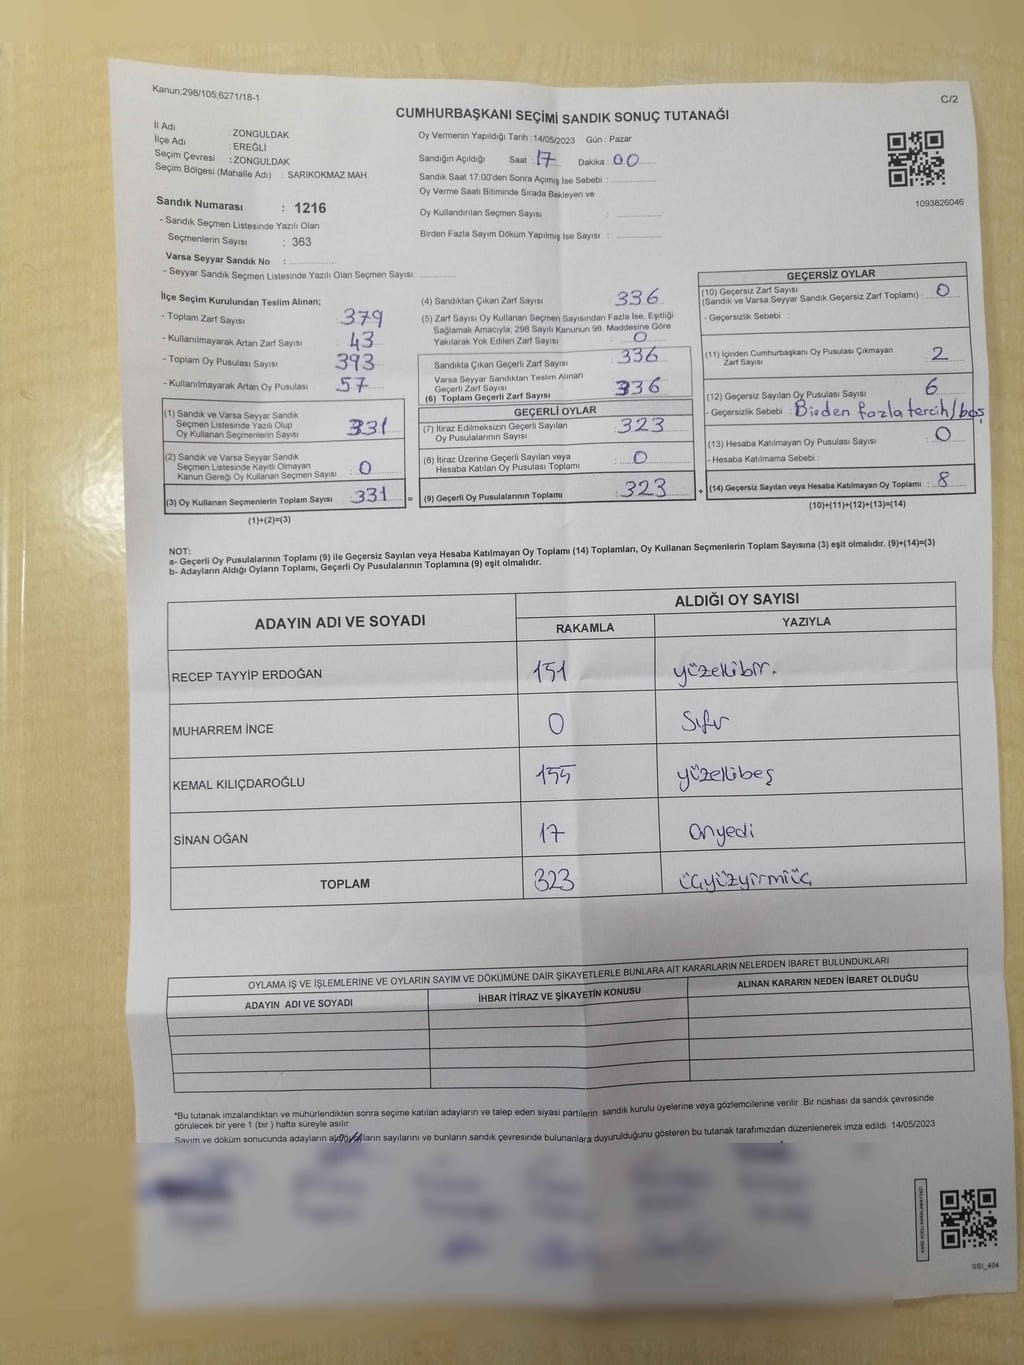 Kanun;298/105;6271/18-1
C/2
CUMHURBAŞKANI SEÇİMİ SANDIK SONUÇ TUTANAĞI
İl Adı : ZONGULDAK
İlçe Adı : EREĞLİ
Seçim Çevresi : ZONGULDAK
Seçim Bölgesi (Mahalle Adı) : SARIKOKMAZ MAH.
Sandık Numarası : 1216
- Sandık Seçmen Listesinde Yazılı Olan
Seçmenlerin Sayısı : 363
Varsa Seyyar Sandık No :
- Seyyar Sandık Seçmen Listesinde Yazılı Olan Seçmen Sayısı:
Oy Vermenin Yapıldığı Tarih : 14/05/2023 Gün : Pazar
Sandığın Açıldığı Saat : 17 Dakika : 00
Sandık Saat 17:00'den Sonra Açımış İse Sebebi :
Oy Verme Saati Bitiminde Sırada Bekleyen ve
Oy Kullandırılan Seçmen Sayısı :
Birden Fazla Sayım Döküm Yapılmış İse Sayısı :
1093826046
İlçe Seçim Kurulundan Teslim Alınan;
- Toplam Zarf Sayısı : 379
- Kullanılmayarak Artan Zarf Sayısı : 43
- Toplam Oy Pusulası Sayısı : 393
- Kullanılmayarak Artan Oy Pusulası : 57
(1) Sandık ve Varsa Seyyar Sandık
Seçmen Listesinde Yazılı Olup
Oy Kullanan Seçmenlerin Sayısı : 331
(2) Sandık ve Varsa Seyyar Sandık
Seçmen Listesinde Kayıtlı Olmayan
Kanun Gereği Oy Kullanan Seçmen Sayısı : 0
(3) Oy Kullanan Seçmenlerin Toplam Sayısı : 331
(1)+(2)=(3)
(4) Sandıktan Çıkan Zarf Sayısı : 336
(5) Zarf Sayısı Oy Kullanan Seçmen Sayısından Fazla İse, Eşitliği
Sağlamak Amacıyla; 298 Sayılı Kanunun 98. Maddesine Göre
Yakılarak Yok Edilen Zarf Sayısı : 0
Sandıkta Çıkan Geçerli Zarf Sayısı : 336
Varsa Seyyar Sandıktan Teslim Alınan
Geçerli Zarf Sayısı
(6) Toplam Geçerli Zarf Sayısı : 336
GEÇERLİ OYLAR
(7) İtiraz Edilmeksizin Geçerli Sayılan
Oy Pusulalarının Sayısı : 323
(8) İtiraz Üzerine Geçerli Sayılan veya
Hesaba Katılan Oy Pusulası Toplamı : 0
= (9) Geçerli Oy Pusulalarının Toplamı : 323
GEÇERSİZ OYLAR
(10) Geçersiz Zarf Sayısı
(Sandık ve Varsa Seyyar Sandık Geçersiz Zarf Toplamı) : 0
- Geçersizlik Sebebi :
(11) İçinden Cumhurbaşkanı Oy Pusulası Çıkmayan
Zarf Sayısı : 2
(12) Geçersiz Sayılan Oy Pusulası Sayısı : 6
- Geçersizlik Sebebi : Birden fazla tercih/boş
(13) Hesaba Katılmayan Oy Pusulası Sayısı : 0
- Hesaba Katılmama Sebebi :
+ (14) Geçersiz Sayılan veya Hesaba Katılmayan Oy Toplamı : 8
(10)+(11)+(12)+(13)=(14)
NOT:
a- Geçerli Oy Pusulalarının Toplamı (9) ile Geçersiz Sayılan veya Hesaba Katılmayan Oy Toplamı (14) Toplamları, Oy Kullanan Seçmenlerin Toplam Sayısına (3) eşit olmalıdır. (9)+(14)=(3)
b- Adayların Aldığı Oyların Toplamı, Geçerli Oy Pusulalarının Toplamına (9) eşit olmalıdır.
ADAYIN ADI VE SOYADI
ALDIĞI OY SAYISI
RAKAMLA YAZIYLA
RECEP TAYYİP ERDOĞAN 151 yüzellibir.
MUHARREM İNCE 0 Sıfır
KEMAL KILIÇDAROĞLU 155 yüzellibeş
SİNAN OĞAN 17 Onyedi
TOPLAM 323 üçyüzyirmiüç
OYLAMA İŞ VE İŞLEMLERİNE VE OYLARIN SAYIM VE DÖKÜMÜNE DAİR ŞİKAYETLERLE BUNLARA AİT KARARLARIN NELERDEN İBARET BULUNDUKLARI
ADAYIN ADI VE SOYADI
İHBAR İTİRAZ VE ŞİKAYETİN KONUSU
ALINAN KARARIN NEDEN İBARET OLDUĞU
*Bu tutanak imzalandıktan ve mühürlendikten sonra seçime katılan adayların ve talep eden siyasi partilerin sandık kurulu üyelerine veya gözlemcilerine verilir .Bir nüshası da sandık çevresinde
görülecek bir yere 1 (bir ) hafta süreyle asılır.
Sayım ve döküm sonucunda adayların aldığı oyların sayılarını ve bunların sandık çevresinde bulunanlara duyurulduğunu gösteren bu tutanak tarafımızdan düzenlenerek imza edildi. 14/05/2023
SSI_404